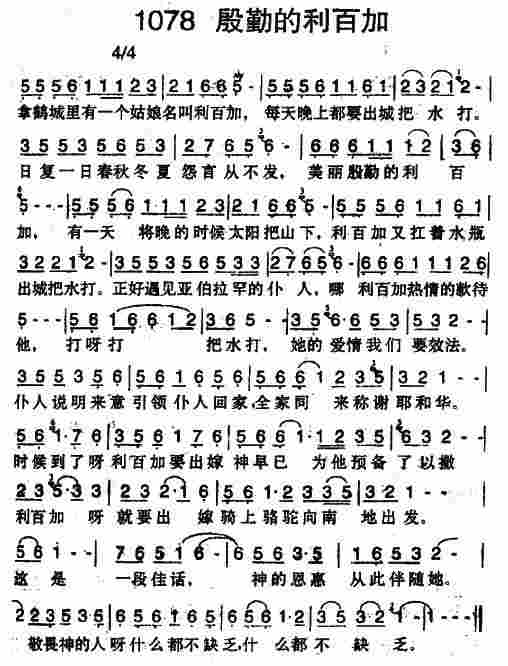 1078 殷勤的利百加
4/4
5 5 5 6 1 1 1 2 3 | 2 1 6 6 5 - | 5 5 5 6 1 1 6 1 | 2 3 2 1 2 - |
拿鹤城里有一个姑娘名叫利百加，每天晚上都要出城把水打。
3 5 5 3 5 3 5 6 | 7 2 7 6 5 - | 6 6 6 1 1 1 2 | 3 6 |
日复一日春秋冬夏怨言从不发，美丽殷勤的利百
5 - - - | 5 5 5 6 1 1 1 2 3 | 2 1 6 6 5 - | 5 5 6 1 1 6 1 |
加，有一天将晚的时候太阳把山下，利百加又扛着水瓶
3 2 2 1 2 - | 3 5 5 3 5 6 5 3 5 6 | 2 7 6 5 6 - | 6 6 1 1 1 2 6 |
出城把水打。正好遇见亚伯拉罕的仆人，哪利百加热情的款待
5 - - - | 5 6 1 6 6 1 2 | 3 6 5 - | 3 5 3 6 6 5 3 | 5 3 2 - |
他，打呀打把水打，她的爱情我们要效法。
3 5 5 3 5 6 | 5 6 1 6 5 6 | 5 6 6 1 2 3 5 | 3 2 1 - - |
仆人说明来意引领仆人回家，全家同来称谢耶和华。
5 6 1·7 6 | 3 5 6 1 7 6 | 5 6 1·1 2 3 5 | 6 3 2 - |
时候到了呀利百加要出嫁神早已为他预备了以撒
2 3 5·3 3 | 2 3 2·2 | 5 6 1·2 3 3 5 | 3 2 1 - - |
利百加呀就要出嫁骑上骆驼向南地出发。
5 6 1 - - | 7 6 5 1 6 - | 6·3 5·5 | 1 6 5 3 2 - - |
这是一段佳话，神的恩惠从此伴随她。
2 2 3 5 3 6 | 5 6 5 3 2 3 2 | 5 6·7 2 6 | 1 - - - ‖
敬畏神的人呀什么都不缺乏，什么都不缺乏。